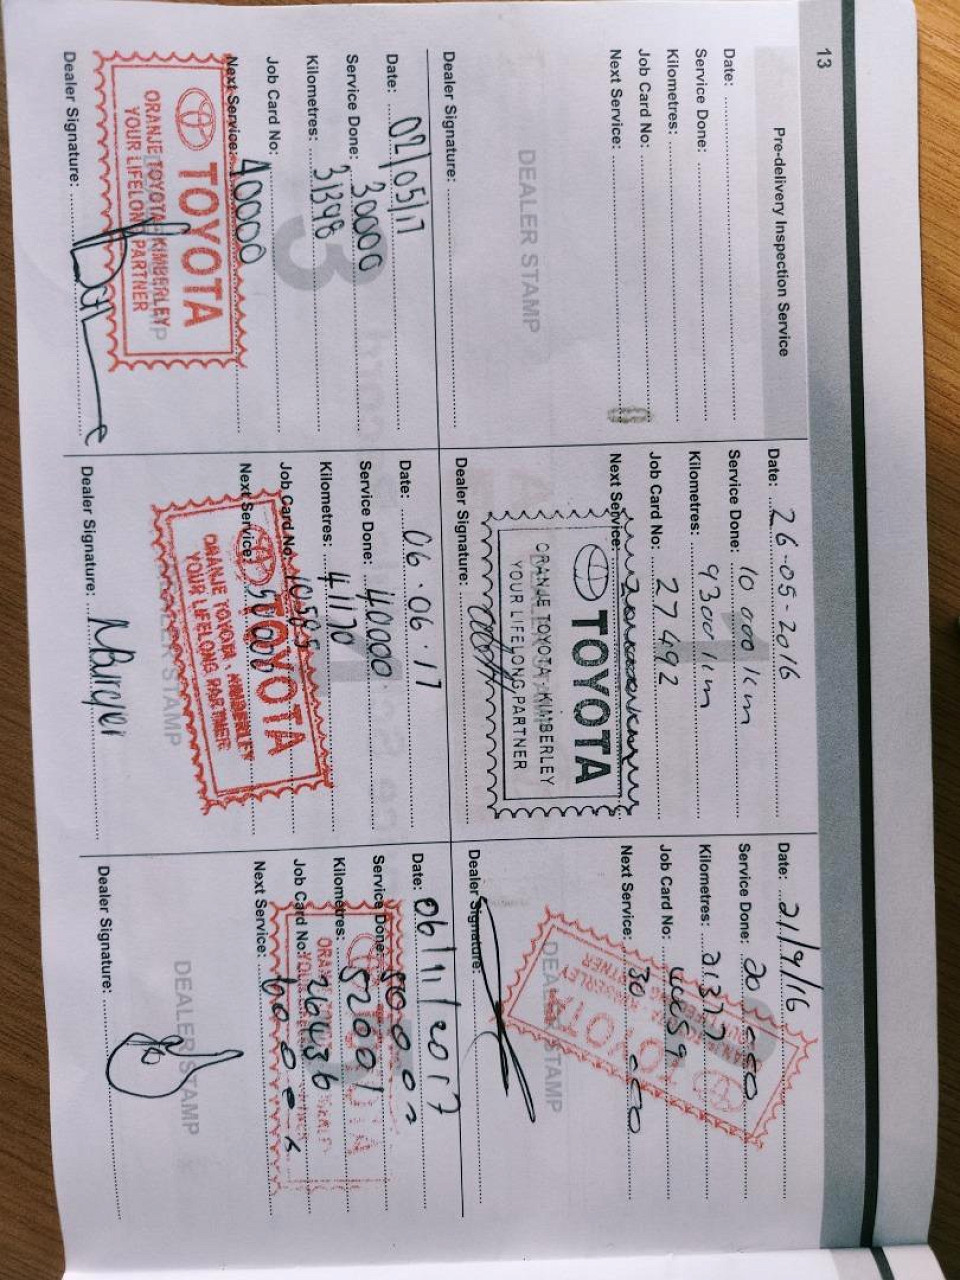 13
Pre-delivery Inspection Service
Date:
Service Done:
Kilometres:
Job Card No:
Next Service:
DEALER STAMP
Dealer Signature:
1
Date: 26-05-2016
Service Done: 10 000 km
Kilometres: 9300 km
Job Card No: 27492
Next Service:
TOYOTA
ORANJE TOYOTA KIMBERLEY
YOUR LIFELONG PARTNER
Dealer Signature:
Date: 21/9/16
Service Done: 20 000
Kilometres: 21377
Job Card No:
Next Service: 30 000
TOYOTA
DEALER STAMP
Dealer Signature:
3
Date: 02/05/17
Service Done: 30000
Kilometres: 31398
Job Card No:
Next Service: 40000
TOYOTA
ORANJE TOYOTA KIMBERLEY
YOUR LIFELONG PARTNER
Dealer Signature:
Date: 06.06.17
Service Done: 40000
Kilometres: 41170
Job Card No: 10585
Next Service: 50000
TOYOTA
ORANJE TOYOTA KIMBERLEY
YOUR LIFELONG PARTNER
DEALER STAMP
Dealer Signature: NBurger
Date: 06/11/2017
Service Done: 50000
Kilometres: 52001
Job Card No: 26436
Next Service: 60000
DEALER STAMP
Dealer Signature: